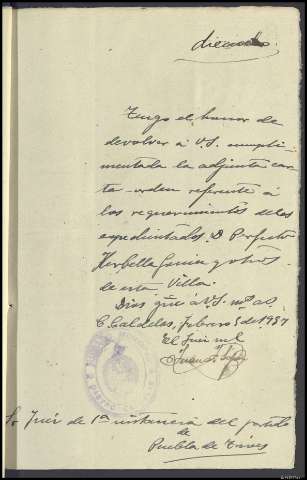 Tengo el honor de
devolver á V.S. cumpli-
mentada la adjunta car-
ta-orden referente á
los requerimientos de los
expedientados D. Perfecto
Herbella Garcia y otros
de esta Villa.
Dios gue á V.S. ms as
C. Caldelas, Febrero 5 de 1937
El Juez ml
Sr Juez de 1ª instancia del partido
de
Puebla de Trives